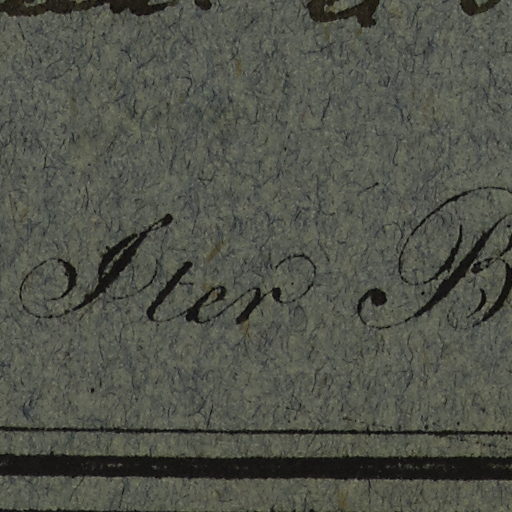 Iter B